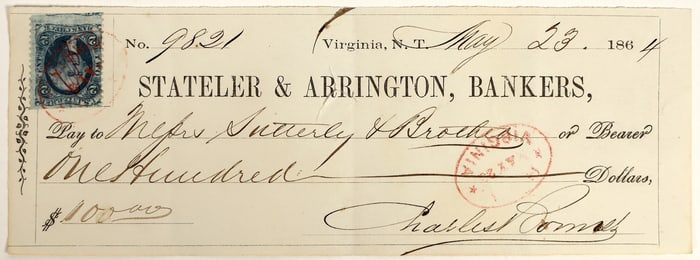 No. 9821 Virginia, N. T. May 23. 1864
STATELER & ARRINGTON, BANKERS,
Pay to Messrs Sutterly & Brother or Bearer
One Hundred Dollars,
$ 100 00
Charles
VIRGINIA